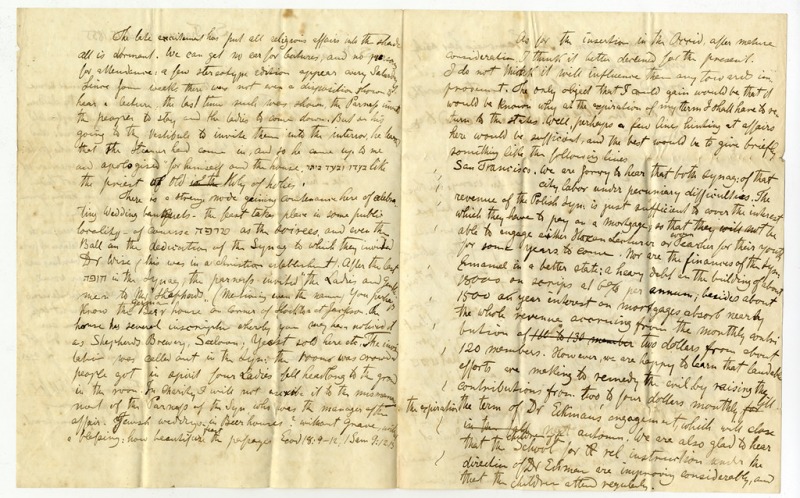 The late excitement has put all religious affairs into the shade
all is dormant. We can get no ear for lectures, and no
for attendance; a few stereotype edition appear every Saturday
Since four weeks there was not even a disposition shown to
hear a lecture, the last time such was shown the Parnass invited
the people to stay and the ladies to come down. But on his
going to the Vestibule to invite them into the interior, he learned
that the Steamer had come in, and so he came up to me
and apologized for himself and the house, בעדו ובעד ביתו like
the priest of old in the Holy of holies.
There is a strong mode gaining countenance here of celebra
ting Wedding banquets - the feast takes place in some public
locality - of course טרפה as the boirees, and even the
Ball on the dedication of the Synag to which they invited
Dr Wise (this was in a christian establishment). After the last
חופה in the Synag, the parnass invited the Ladies and Gentle
men to the Shappards, (
know the Beer house on corner of Stockton & Jackson. The
house has several inscription whereby you may have noticed it
as Shepherds Brewery, Saloon, Yeast sold here etc. The invi
tation was called out in the Syn; the rooms was crowd
people got in spirit four Ladies fell headlong to the ground
in the room. For charity I will not ascribe it to the
ment of the Parnass of the Syn who was the manager of the
affair. Jewish weddings in Beerhouses! without Grace,
Blessing; how beautiful the passages Exod 18:9-12, 1 Sam 9:12-13
As for the insertion in the Occid. after mature
consideration I think it better deferred for the present.
I do not think it will influence them any toward im
provement. The only object that I could gain would be that it
would be known why at the expiration of my term I shall have to re
turn to the states. Well, perhaps a few line hinting at affairs
here would be sufficient, and the best would be to give briefly
something like the following lines
San Francisco, we are sorry to hear that both synag. of that
city labor under pecuniary difficulties. The
revenue of the Polish Syn. is just sufficient to cover the interest
which they have to pay on a mortgage, so that they will not be
able to engage either Hazan Lecturer or Teacher for their youth
for some years to come. Nor are the finances of the Syn
Emanuel in a better state; a heavy debt on the building of about
18000 on scrips at 6% per annum; besides about
1500 an year interest on mortgages absorb nearly
the whole revenue accruing from the monthly contri
bution of 110 to 130 member two dollars from about
120 members. However, we are happy to learn that laudable
efforts are making to remedy the evil by raising the
contributions from two to four dollars monthly, till
the expiration the term of Dr Elkman's engagement which will close
autumn. We are also glad to hear
that the School for & rel instruction under the
direction of Dr Eckman are improving considerably, and
that the children attend regularly.